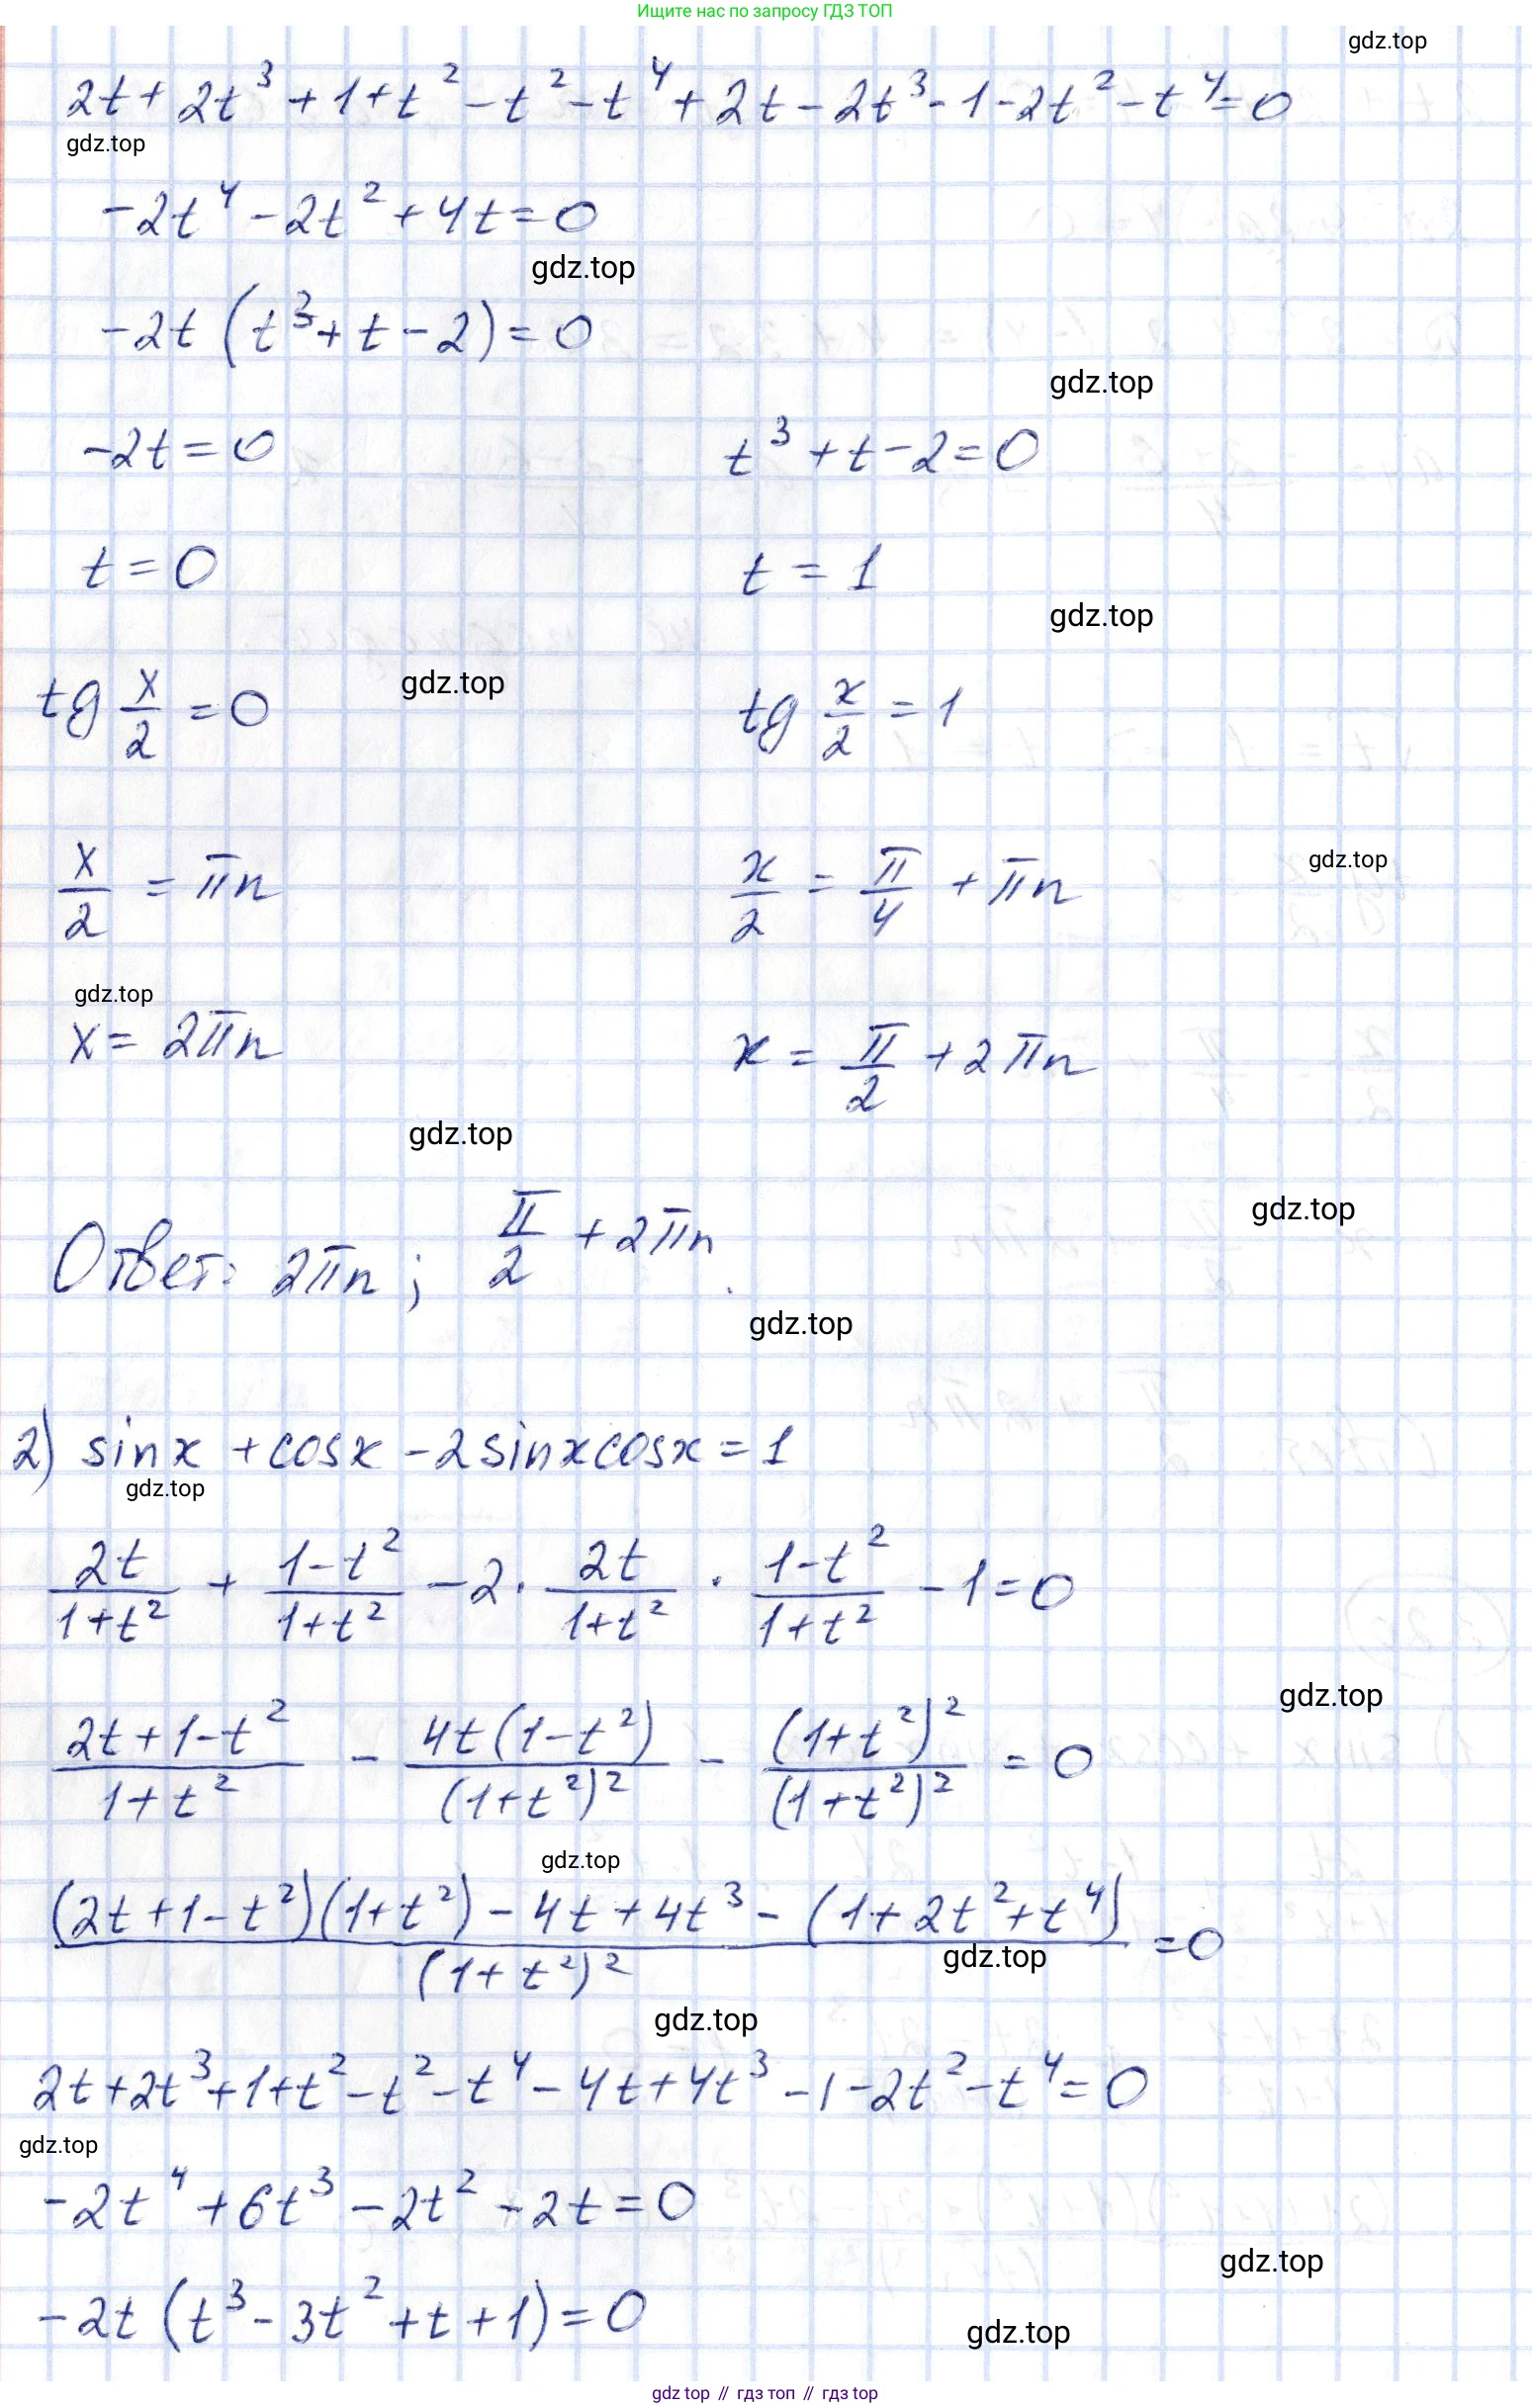 Ищите нас по запросу ГДЗ ТОП
gdz.top
2t + 2t³ + 1 + t² - t² - t⁴ + 2t - 2t³ - 1 - 2t² - t⁴ = 0
gdz.top
-2t⁴ - 2t² + 4t = 0
gdz.top
-2t (t³ + t - 2) = 0
gdz.top
-2t = 0 t³ + t - 2 = 0
t = 0 t = 1
gdz.top
gdz.top
tg x/2 = 0 tg x/2 = 1
gdz.top
x/2 = πn x/2 = π/4 + πn
gdz.top
x = 2πn x = π/2 + 2πn
gdz.top
gdz.top
Ответ: 2πn; π/2 + 2πn.
gdz.top
2) sinx + cosx - 2sinxcosx = 1
gdz.top
2t/(1+t²) + (1-t²)/(1+t²) - 2 · 2t/(1+t²) · (1-t²)/(1+t²) - 1 = 0
gdz.top
(2t+1-t²)/(1+t²) - 4t(1-t²)/(1+t²)² - (1+t²)²/(1+t²)² = 0
gdz.top
((2t+1-t²)(1+t²) - 4t + 4t³ - (1+2t²+t⁴))/(1+t²)² = 0
gdz.top
gdz.top
2t + 2t³ + 1 + t² - t² - t⁴ - 4t + 4t³ - 1 - 2t² - t⁴ = 0
gdz.top
-2t⁴ + 6t³ - 2t² - 2t = 0
gdz.top
-2t (t³ - 3t² + t + 1) = 0
gdz.top
gdz top // гдз топ // гдз top